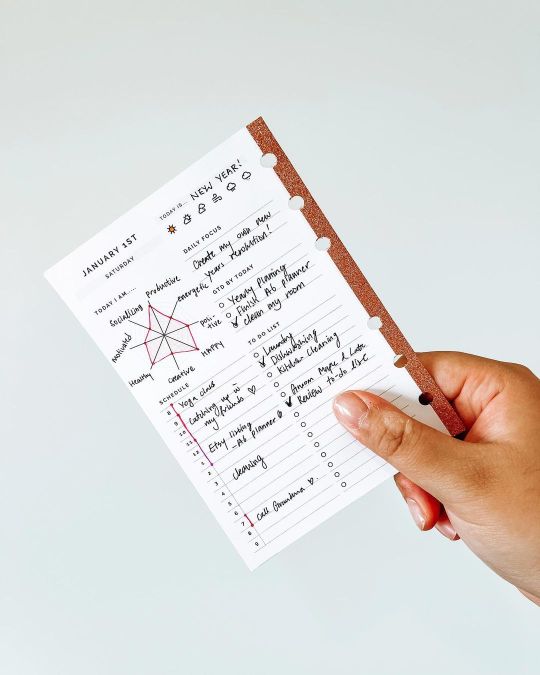 JANUARY 1ST
SATURDAY
TODAY IS... NEW YEAR!
TODAY I AM....
Productive
energetic
positive
HAPPY
creative
Healthy
Motivated
Socializing
DAILY FOCUS
Create my own new
years resolution!
GTD BY TODAY
Yearly Planing
Finish A6 planner
clean my room
SCHEDULE
8 Yoga class
9 Catching up w
10 my friends
11
12 Etsy listing
1 - A6 planner
2
3 cleaning
4
5
6
7 call Grandma
8
9
TO DO LIST
Laundry
Dishwashing
Kitchen cleaning
Review to-do list